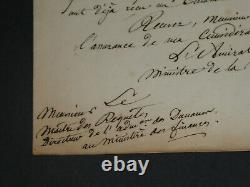 ont déjà reçu un
Recevez, Monsieur
l'assurance de ma Considéra
L'Amiral
Ministre de la
Monsieur Le
Maitre des Requêtes
Directeur de l'adm.on des Douanes
au Ministère des finances.